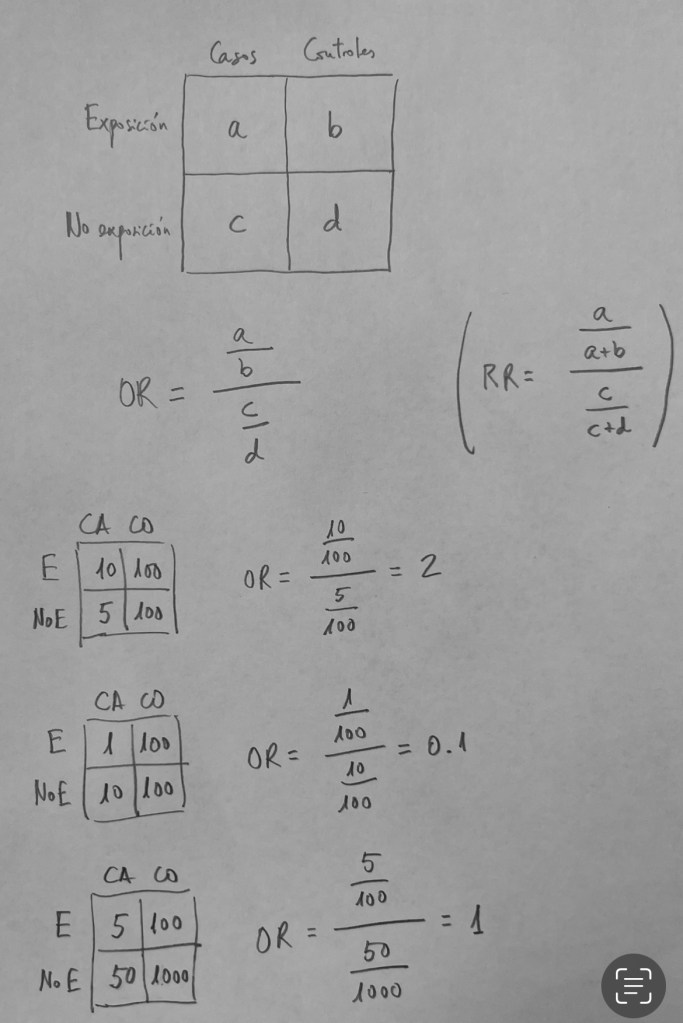 Casos Controles
Exposición a b
No exposición c d
OR = (a/b)/(c/d)
(RR = (a/(a+b))/(c/(c+d)))
CA CO
E 10 100
NoE 5 100
OR = (10/100)/(5/100) = 2
CA CO
E 1 100
NoE 10 100
OR = (1/100)/(10/100) = 0.1
CA CO
E 5 100
NoE 50 1000
OR = (5/100)/(50/1000) = 1